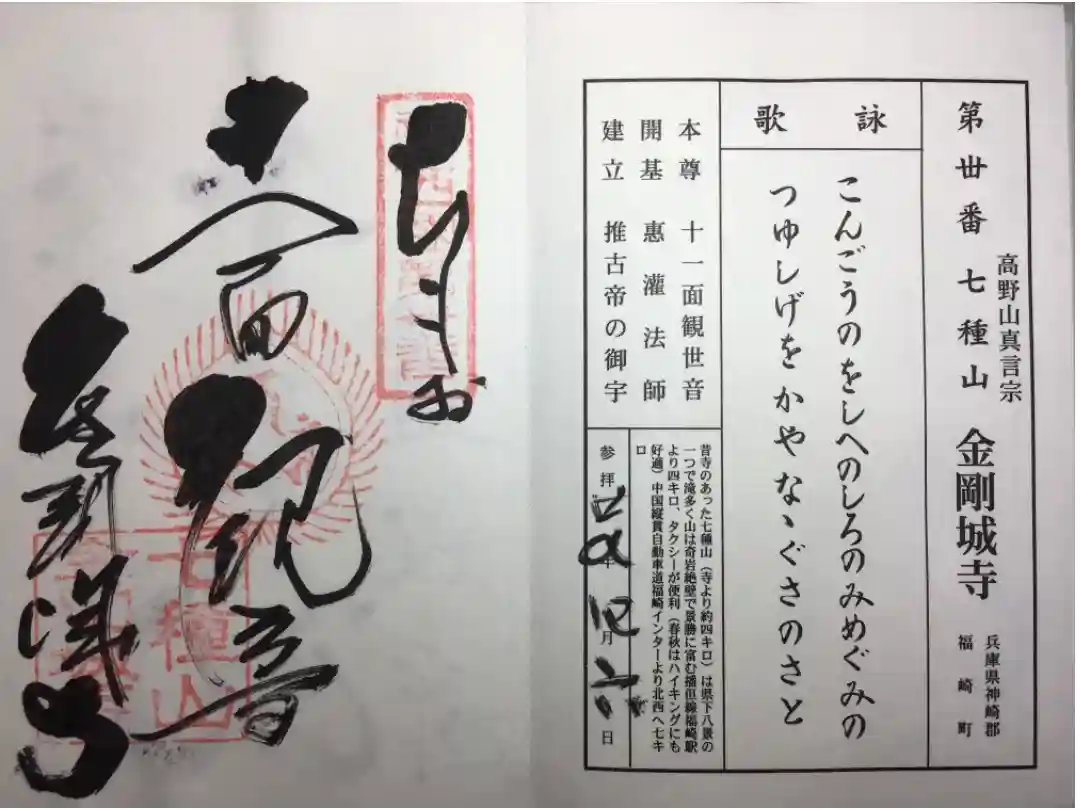 第丗番 七種山 金剛城寺
高野山真言宗
兵庫県神崎郡
福崎町
詠歌
こんごうのをしへのしろのみめぐみの
つゆしげをかやなゝぐさのさと
本尊 十一面観世音
開基 惠灌法師
建立 推古帝の御宇
昔寺のあった七種山（寺より約四キロ）は県下八景の
一つで滝多く山は奇岩絶壁で景勝に富む播但線福崎駅
より四キロ、タクシーが便利（春秋はハイキングにも
好適）中国縦貫自動車道福崎インターより北西へ七キ
ロ
参拝 年 月 六日
十一面観音
金剛城寺
七種山